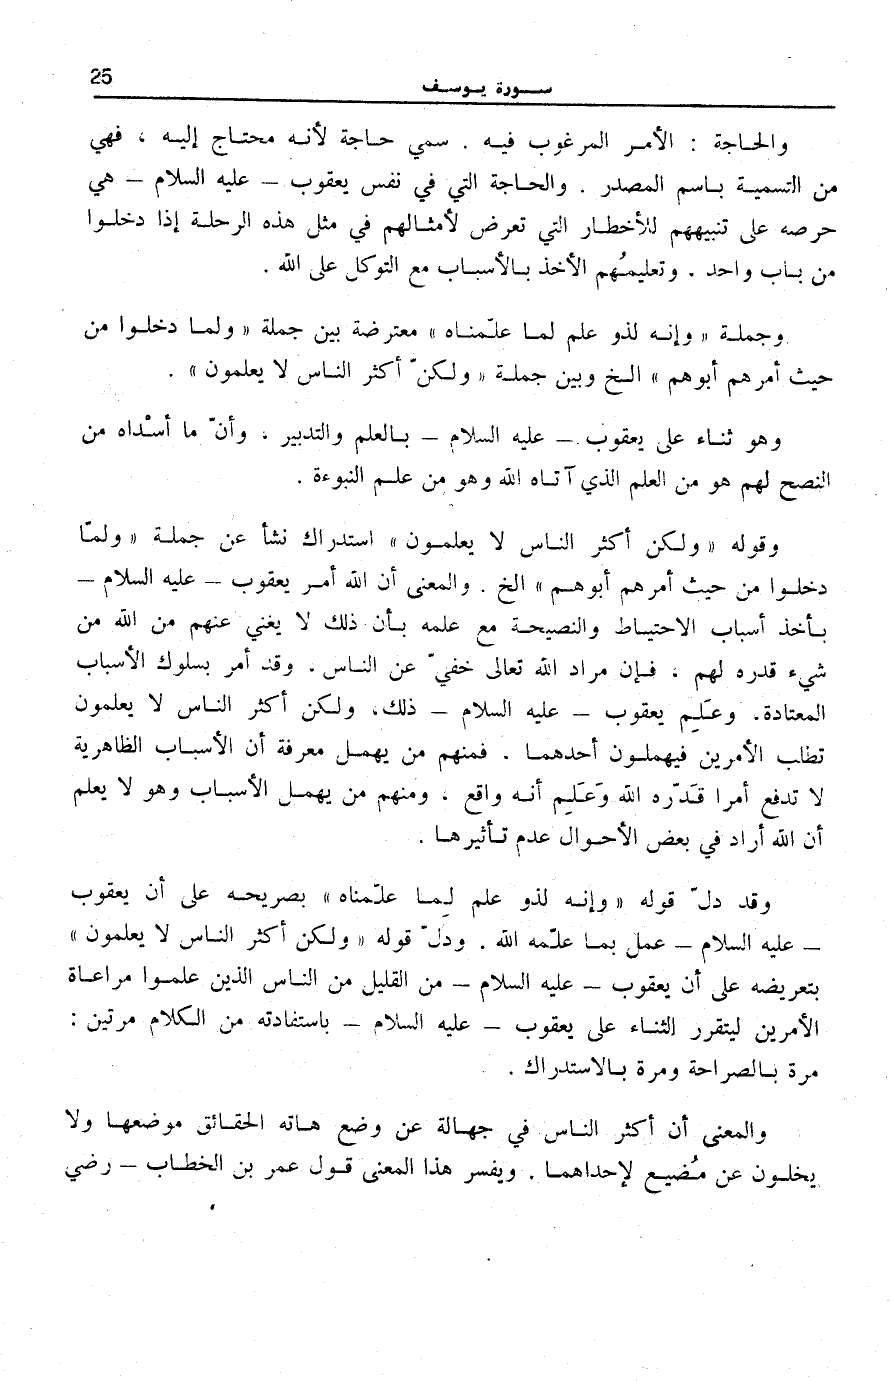 سورة يوسف 25
والحاجة : الأمر المرغوب فيه . سمي حاجة لأنه محتاج إليه ، فهي
من التسمية باسم المصدر . والحاجة التي في نفس يعقوب – عليه السلام – هي
حرصه على تنبيههم للأخطار التي تعرض لأمثالهم في مثل هذه الرحلة إذا دخلوا
من باب واحد . وتعليمُهم الأخذ بالأسباب مع التوكل على الله .
وجملة « وإنه لذو علم لما علّمناه » معترضة بين جملة « ولما دخلوا من
حيث أمرهم أبوهم » الخ وبين جملة « ولكنّ أكثر الناس لا يعلمون » .
وهو ثناء على يعقوب – عليه السلام – بالعلم والتدبير ، وأنّ ما أسْداه من
النصح لهم هو من العلم الذي آتاه الله وهو من علم النبوءة .
وقوله « ولكن أكثر الناس لا يعلمون » استدراك نشأ عن جملة « ولمّا
دخلوا من حيث أمرهم أبوهم » الخ . والمعنى أن الله أمر يعقوب – عليه السلام –
بأخذ أسباب الاحتياط والنصيحة مع علمه بأن ذلك لا يغني عنهم من الله من
شيء قدره لهم ، فإن مراد الله تعالى خفيّ عن الناس ، وقد أمر بسلوك الأسباب
المعتادة. وعَلِم يعقوب – عليه السلام – ذلك، ولكن أكثر الناس لا يعلمون
تطلب الأمرين فيهملون أحدهما . فمنهم من يهمل معرفة أن الأسباب الظاهرية
لا تدفع أمرا قَدّره الله وَعَلِم أنه واقع ، ومنهم من يهمل الأسباب وهو لا يعلم
أن الله أراد في بعض الأحوال عدم تأثيرها .
وقد دلّ قوله « وإنه لذو علم لِما علّمناه » بصريحه على أن يعقوب
– عليه السلام – عمل بما علّمه الله . ودَلّ قوله « ولكن أكثر الناس لا يعلمون »
بتعريضه على أن يعقوب – عليه السلام – من القليل من الناس الذين علموا مراعاة
الأمرين ليتقرر الثناء على يعقوب – عليه السلام – باستفادته من الكلام مرتين :
مرة بالصراحة ومرة بالاستدراك .
والمعنى أن أكثر الناس في جهالة عن وضع هاته الحقائق موضعها ولا
يخلون عن مُضيع لإحداهما . ويفسر هذا المعنى قول عمر بن الخطاب – رضي